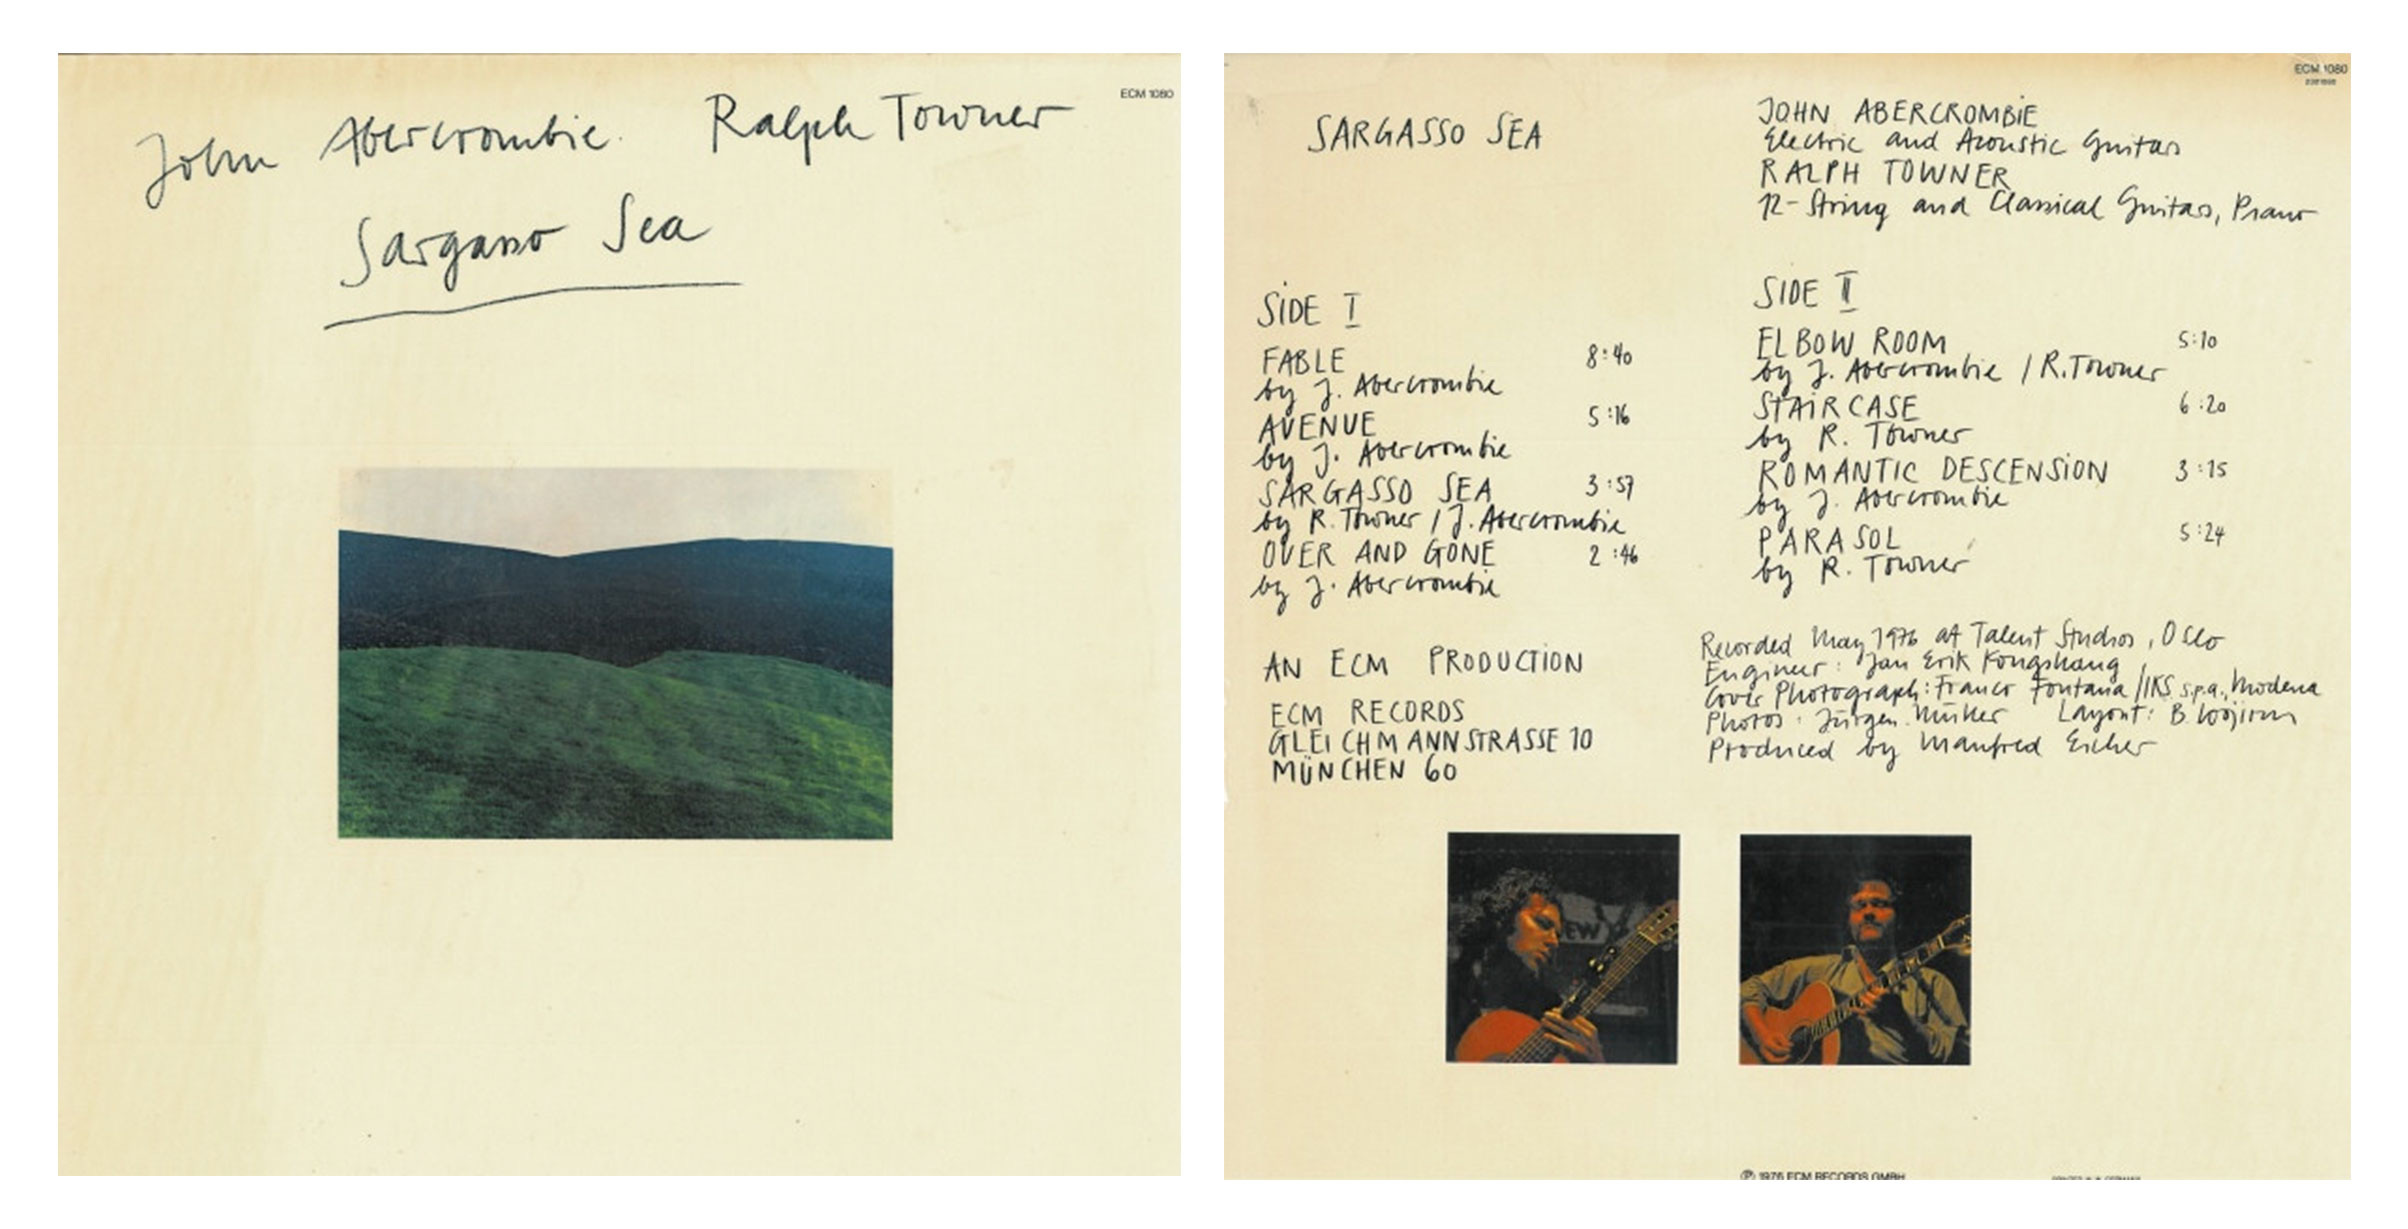 ECM 1080
John Abercrombie. Ralph Towner
Sargasso Sea
ECM 1080
SARGASSO SEA
JOHN ABERCROMBIE
Electric and Acoustic Guitars
RALPH TOWNER
12-String and Classical Guitars, Piano
SIDE I
FABLE 8:40
by J. Abercrombie
AVENUE 5:16
by J. Abercrombie
SARGASSO SEA 3:57
by R. Towner / J. Abercrombie
OVER AND GONE 2:46
by J. Abercrombie
SIDE II
ELBOW ROOM 5:10
by J. Abercrombie / R. Towner
STAIRCASE 6:20
by R. Towner
ROMANTIC DESCENSION 3:15
by J. Abercrombie
PARASOL 5:24
by R. Towner
AN ECM PRODUCTION
ECM RECORDS
GLEICHMANNSTRASSE 10
MÜNCHEN 60
Recorded May 1976 at Talent Studios, Oslo
Engineer: Jan Erik Kongshaug
Cover Photograph: Franco Fontana / IKS s.p.a., Modena
Photos: Jürgen Müller Layout: B. Wojirsch
Produced by Manfred Eicher
EW
℗ 1976 ECM RECORDS GMBH